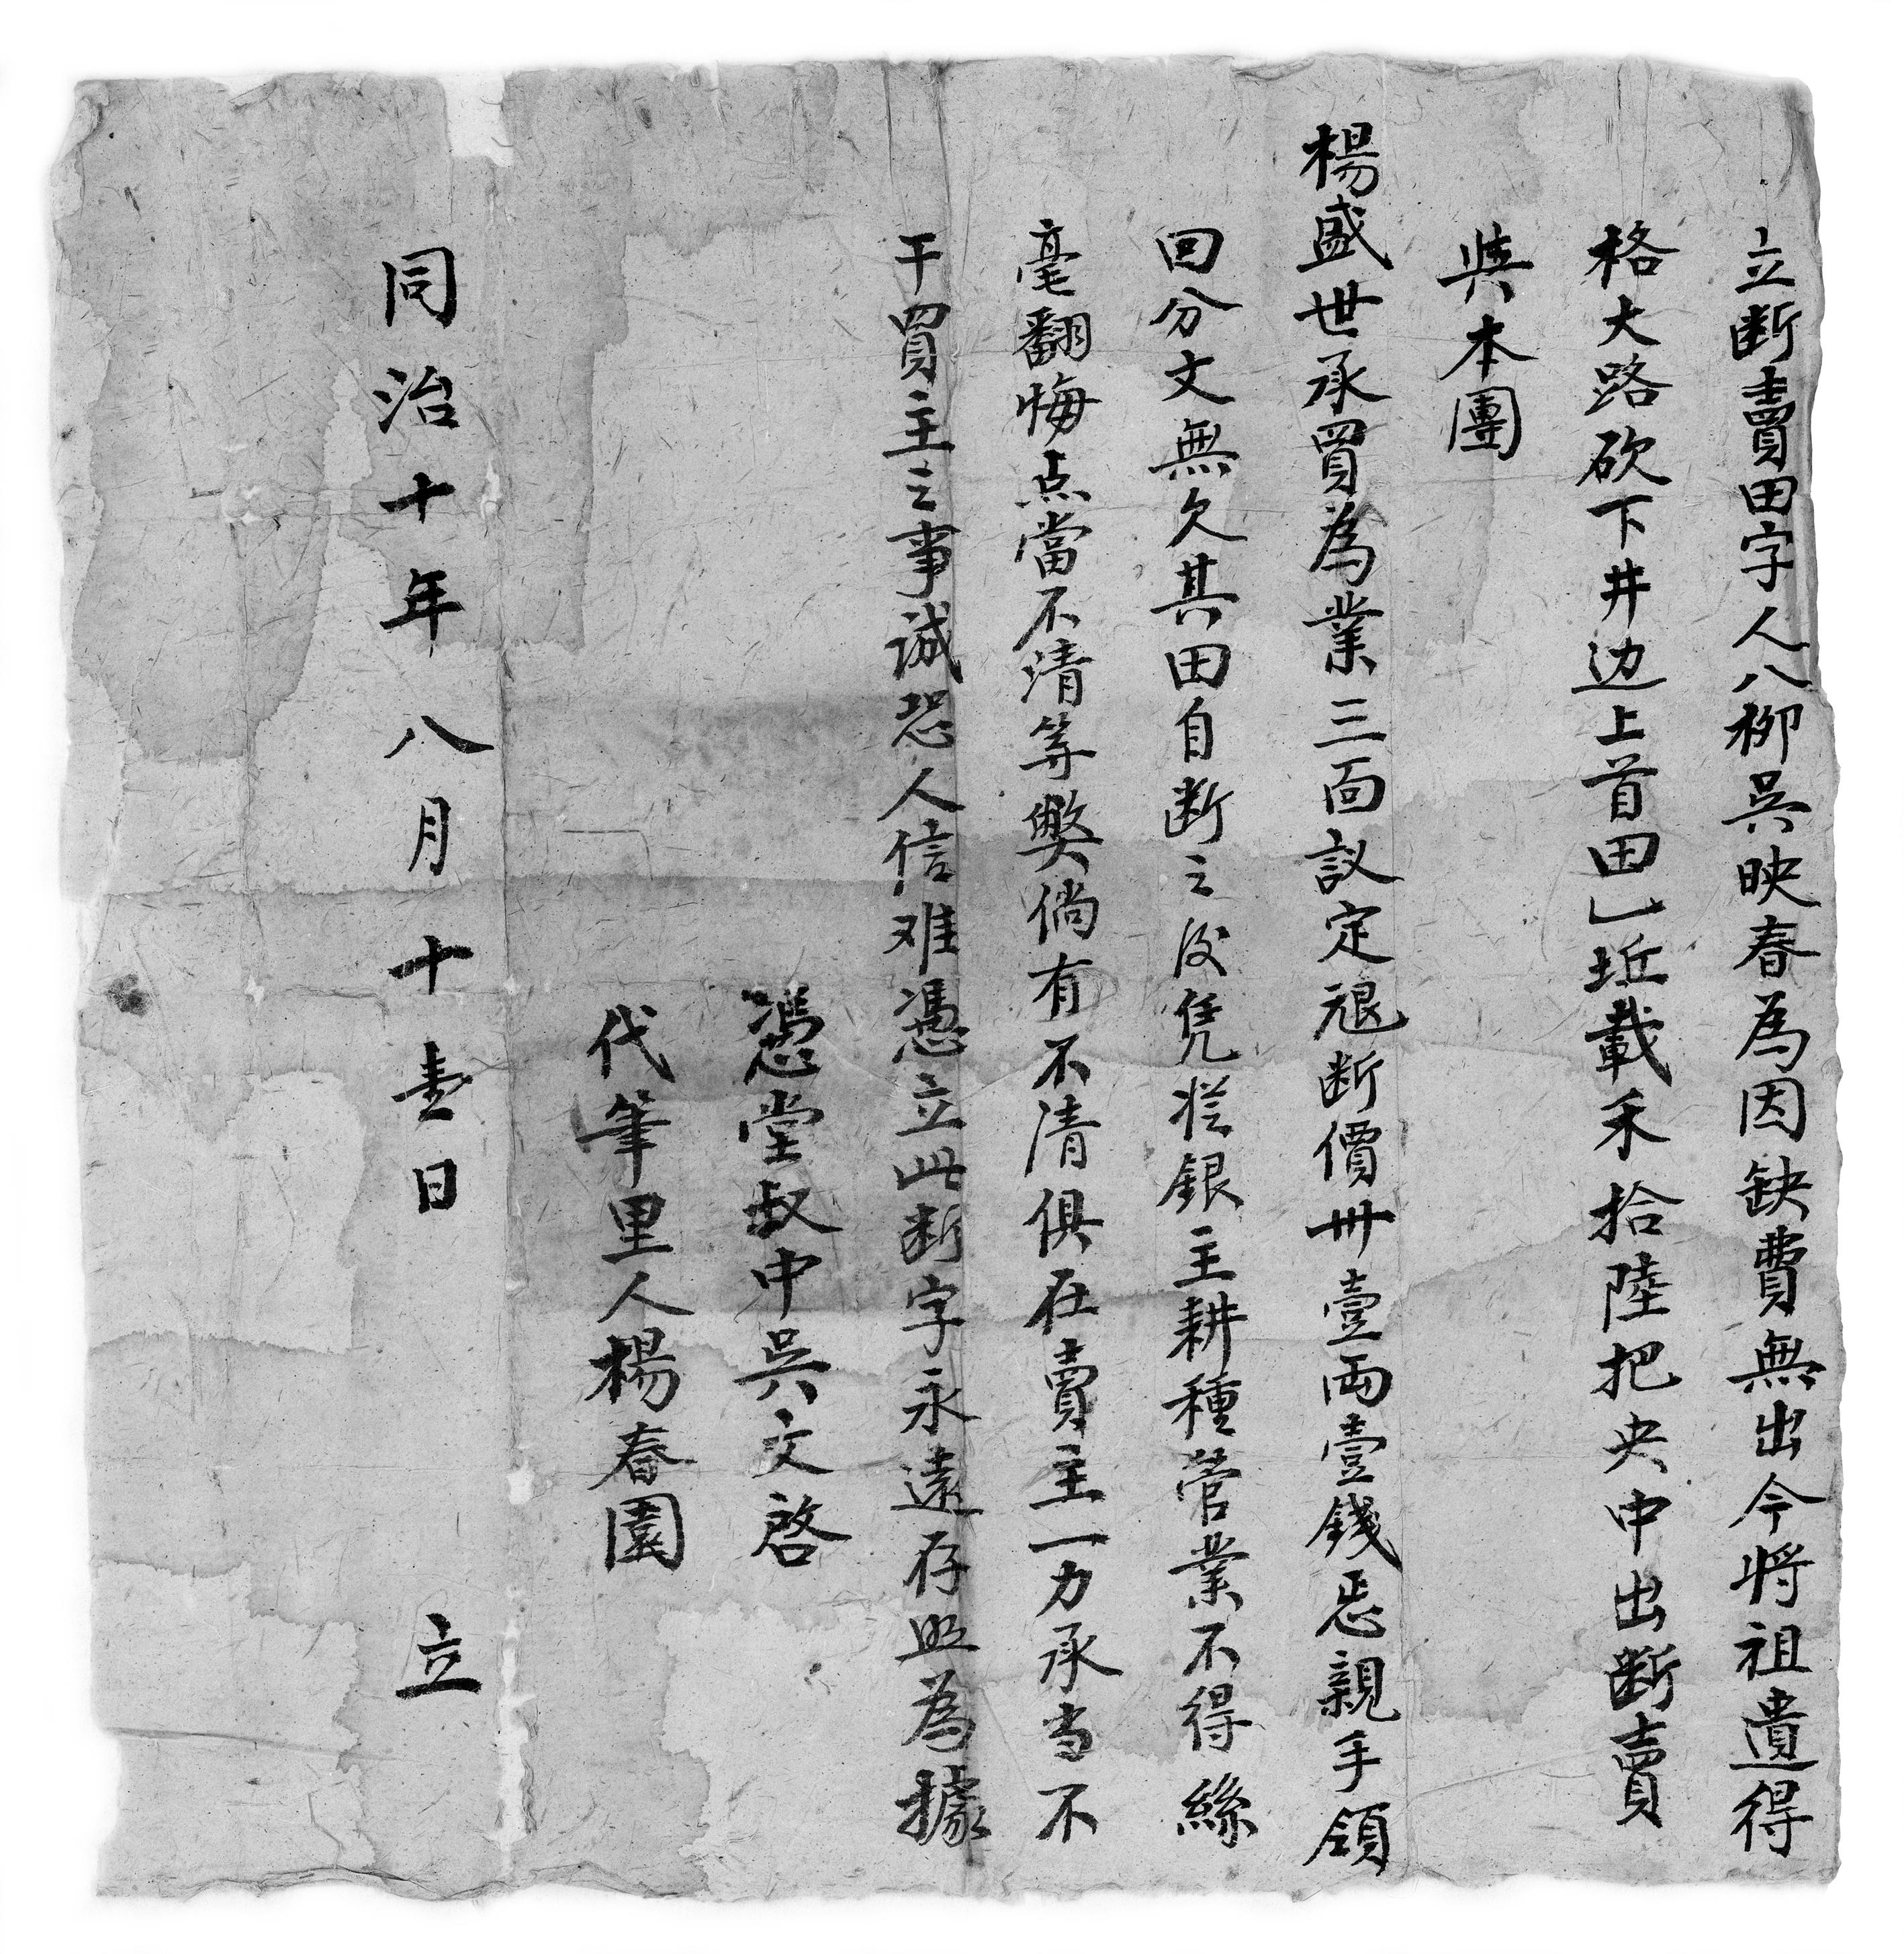 立断賣田字人八柳吳映春為因缺費無出今将祖遺得
格大路砍下井边上首田乚坵載禾拾陸把央中出断賣
與本團
楊盛世承買為業三面議定退断價卅壹両壹錢悉親手領
回分文無欠其田自断之後凭從銀主耕種管業不得絲
毫翻悔点當不清等弊倘有不清俱在賣主一力承当不
干買主之事誠恐人信难憑立此断字永遠存照為據
憑堂叔中吳文啓
代筆里人楊春園
同治十年八月十壹日 立